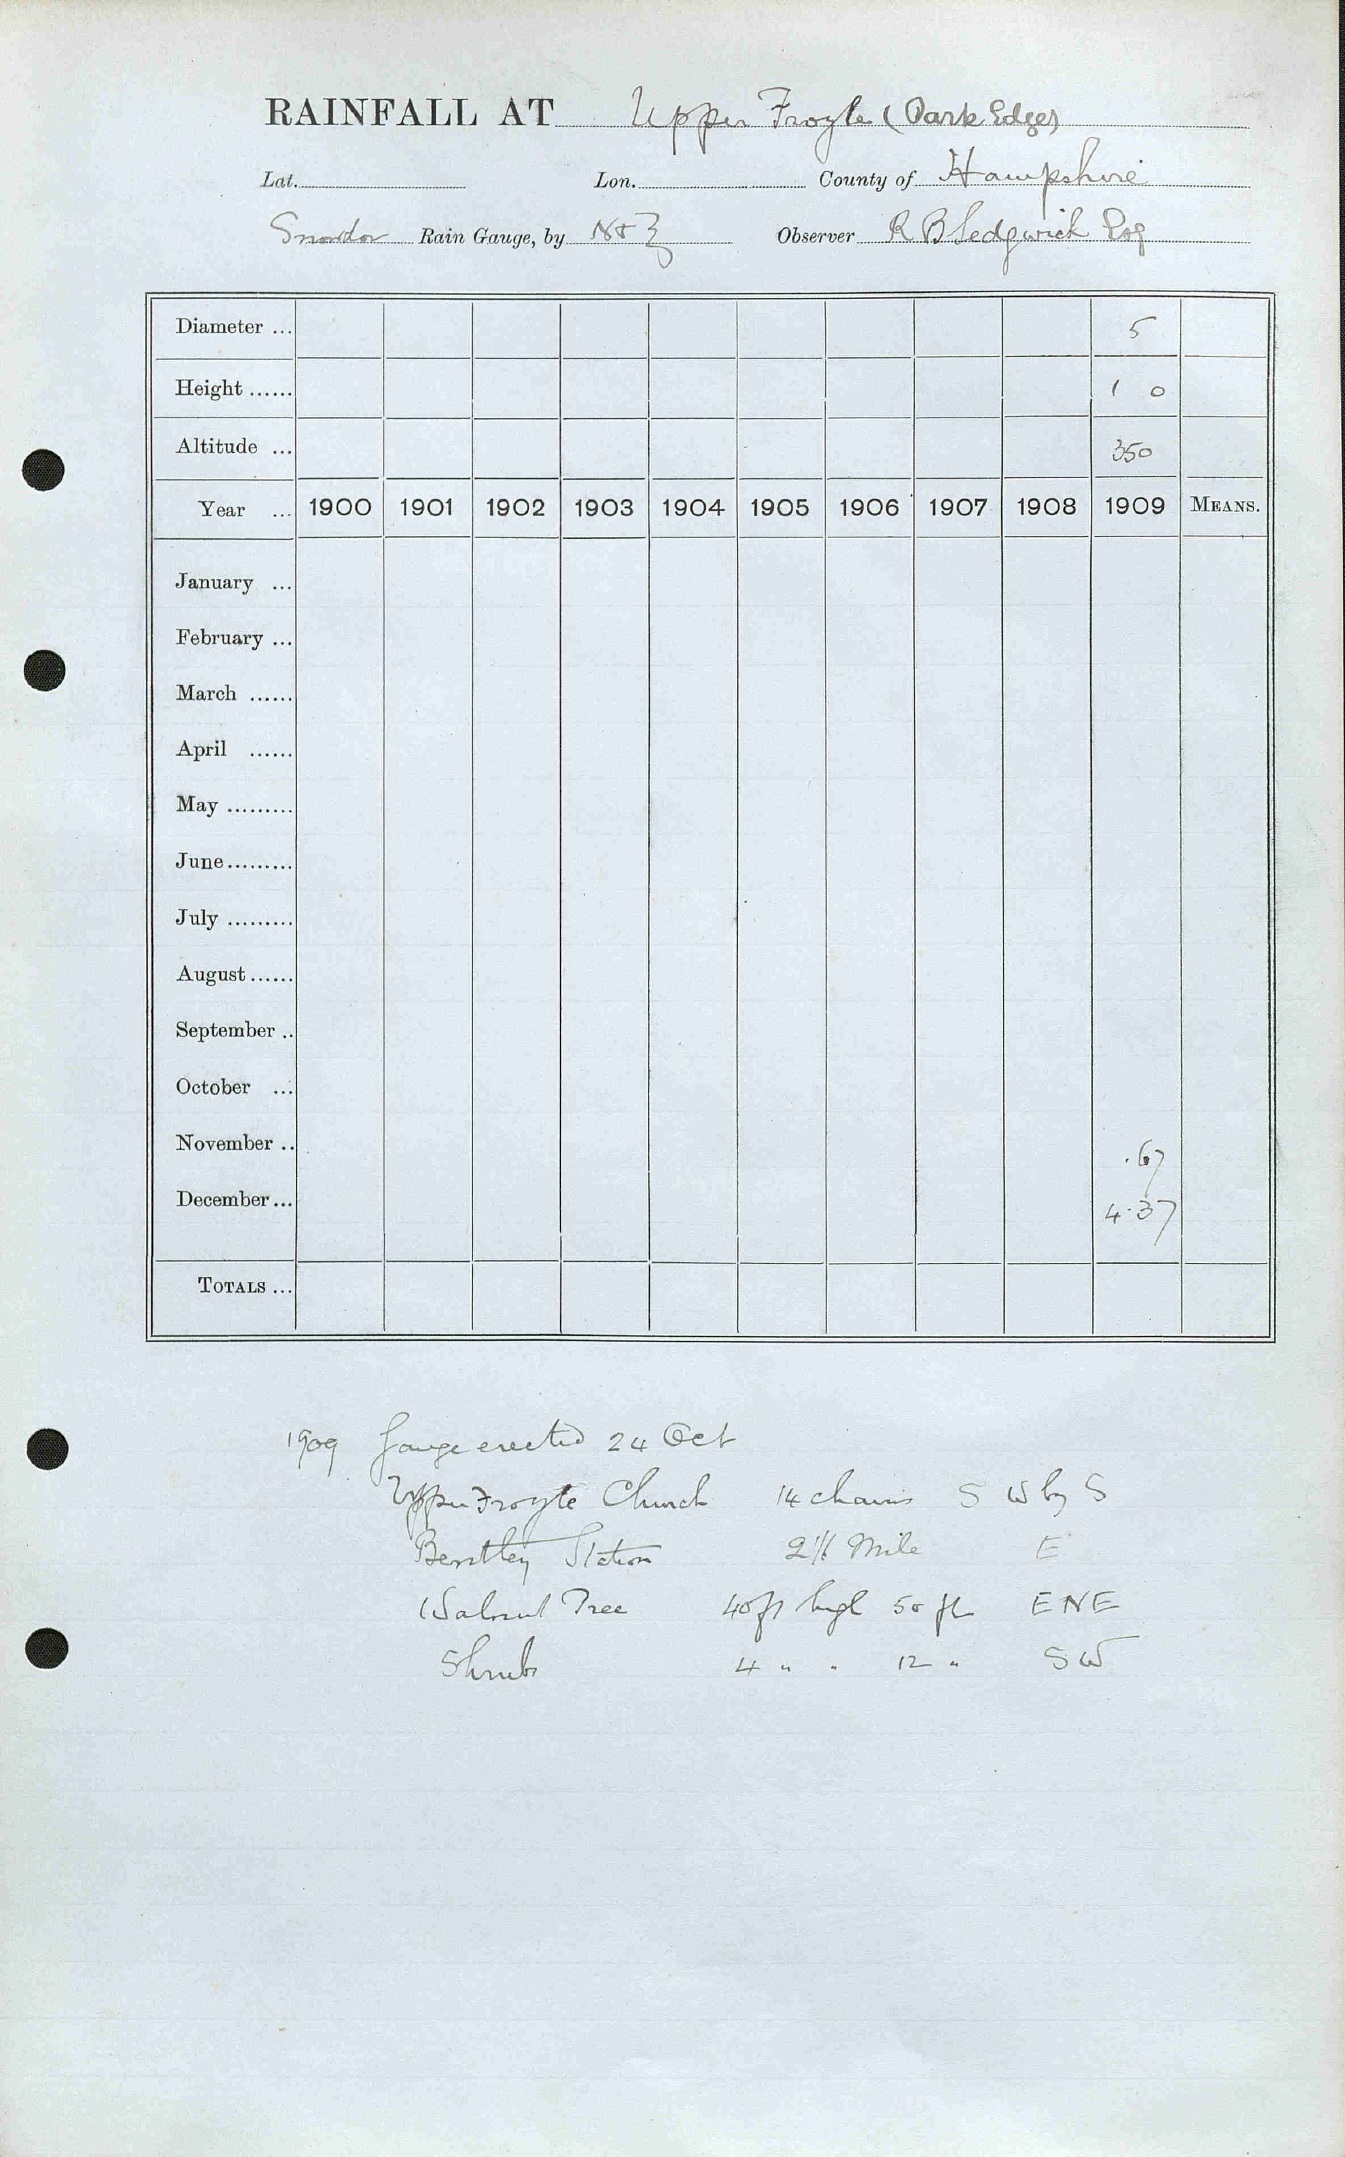 RAINFALL AT Upper Froyle (Park Edge)
Lat. Lon. County of Hampshire
Snowdon Rain Gauge, by N & Z Observer R B Sedgwick Esq
Diameter ... 5
Height ...... 1 0
Altitude ... 350
Year ... 1900 1901 1902 1903 1904 1905 1906 1907 1908 1909 MEANS.
January ...
February ...
March ......
April ......
May .........
June .........
July .........
August ......
September ..
October ...
November .. .67
December ... 4.37
TOTALS ...
1909 Gauge erected 24 Oct
Upper Froyle Church 14 chains S W by S
Bentley Station Mile E
Walnut Tree 40 ft high 50 ft ENE
Shrubs 4 " " 12 " SW